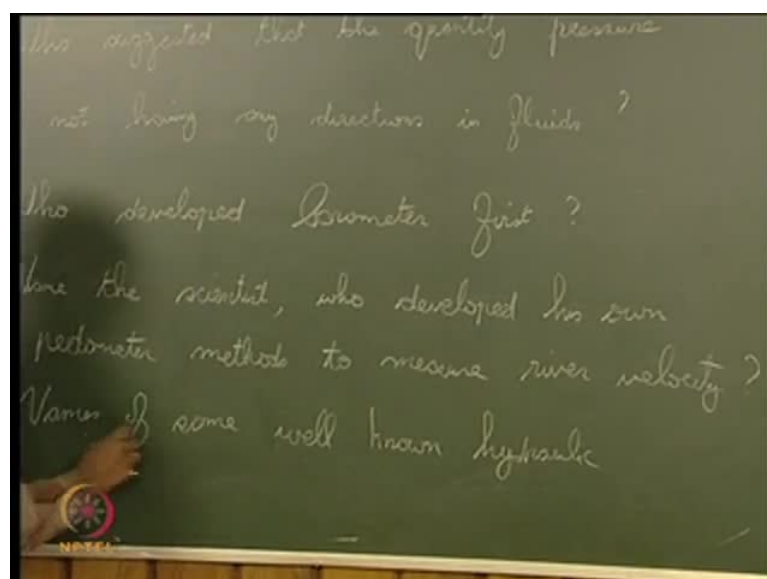 Who suggested that the quantity pressure
not having any directions in fluids ?
Who developed Barometer first ?
Name the scientist, who developed his own
pedometer methods to measure river velocity ?
Names of some well known hydraulic
NPTEL